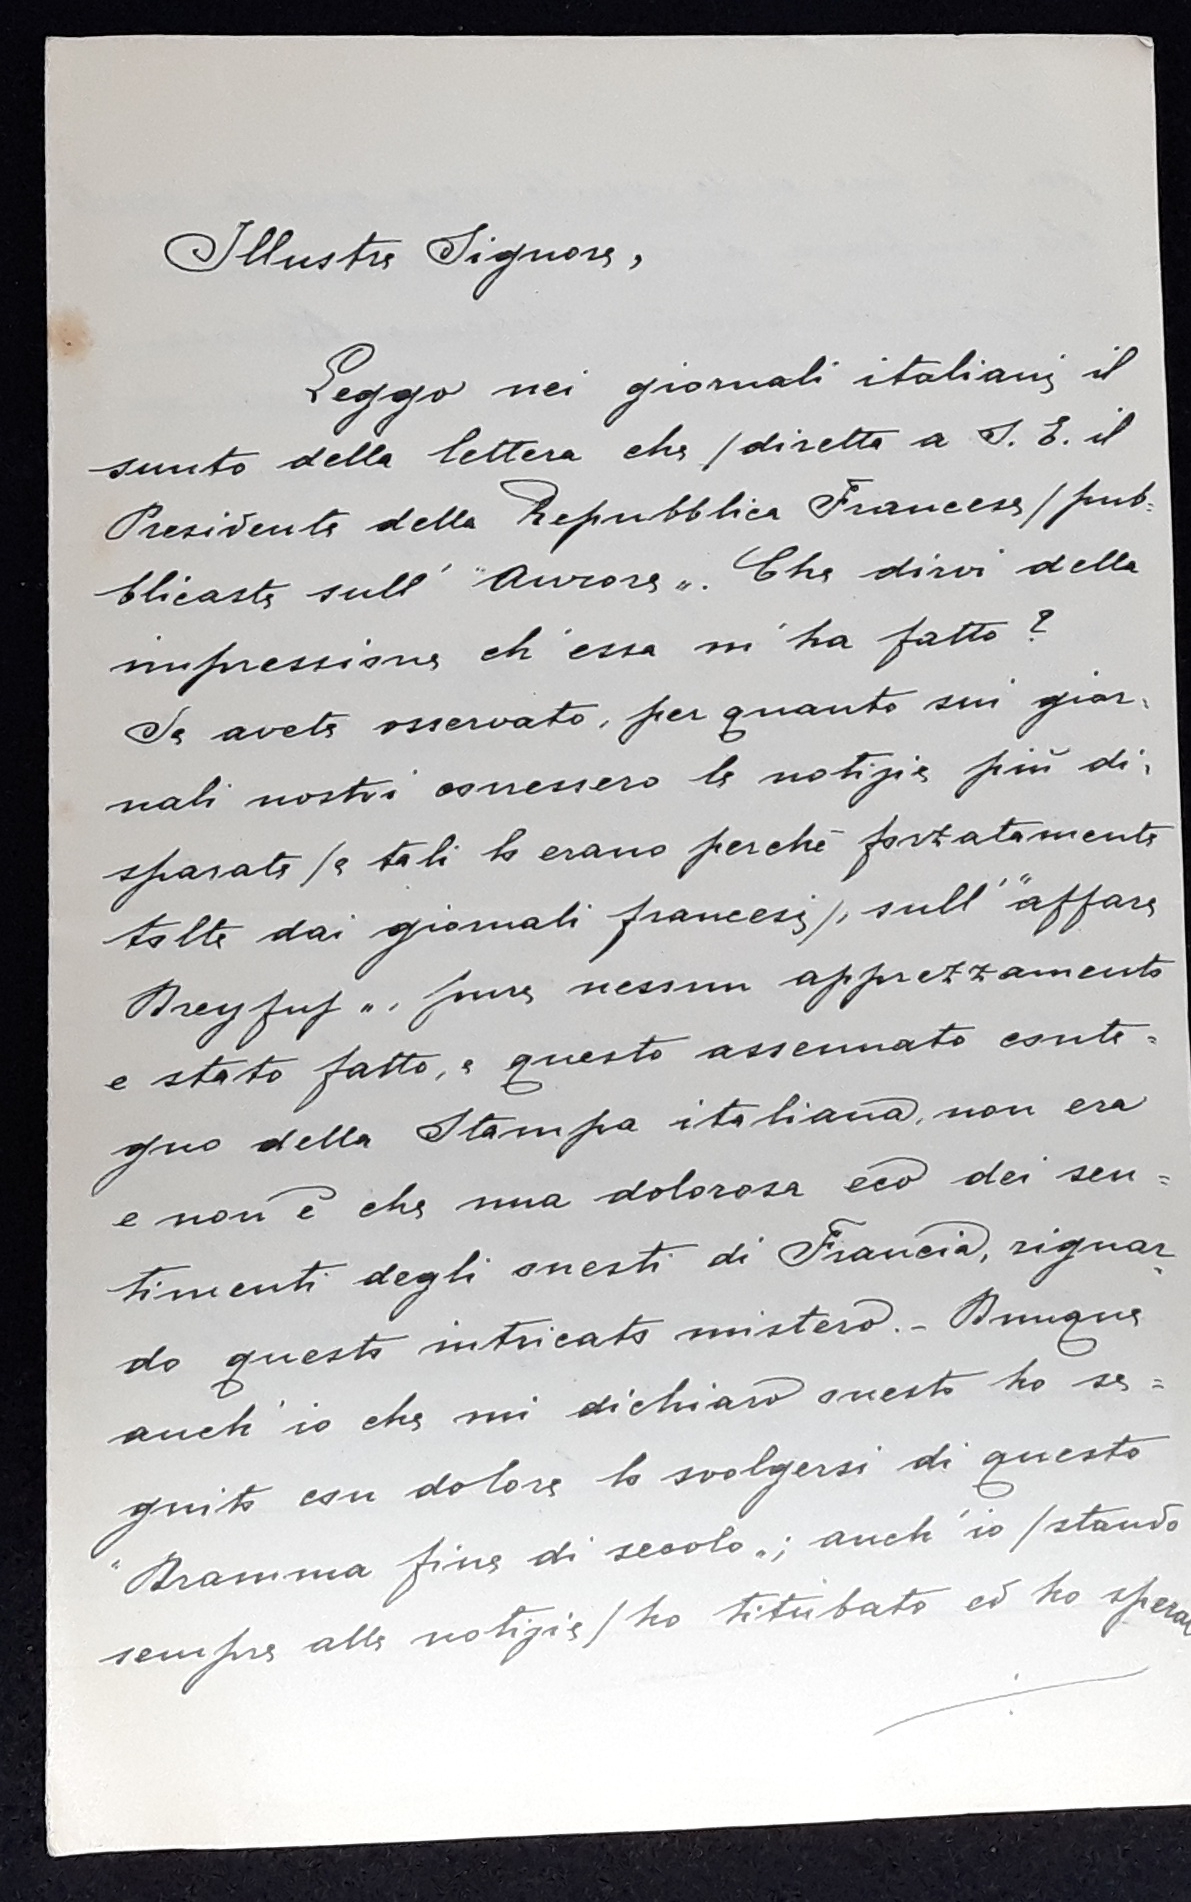 Illustre Signore,
Leggo nei giornali italiani il
sunto della lettera che /diretta a S. E. il
Presidente della Repubblica Francese/ pub-
blicaste sull' "Aurore„. Che dirvi della
impressione ch'essa m'ha fatto?
Se avete osservato, per quanto sui gior-
nali nostri corressero le notizie più di-
sparate /e tali lo erano perchè forzatamente
tolte dai giornali francesi/, sull' "affare
Dreyfus„, pure nessun apprezzamento
e stato fatto, e questo assennato conte=
gno della Stampa italiana, non era
e non è che una dolorosa eco dei sen=
timenti degli onesti di Francia, riguar-
do questo intricato mistero. - Dunque
anch'io che mi dichiaro onesto ho se=
guito con dolore lo svolgersi di questo
"Dramma fine di secolo„; anch'io /stando
sempre alle notizie/ ho titubato ed ho sperat